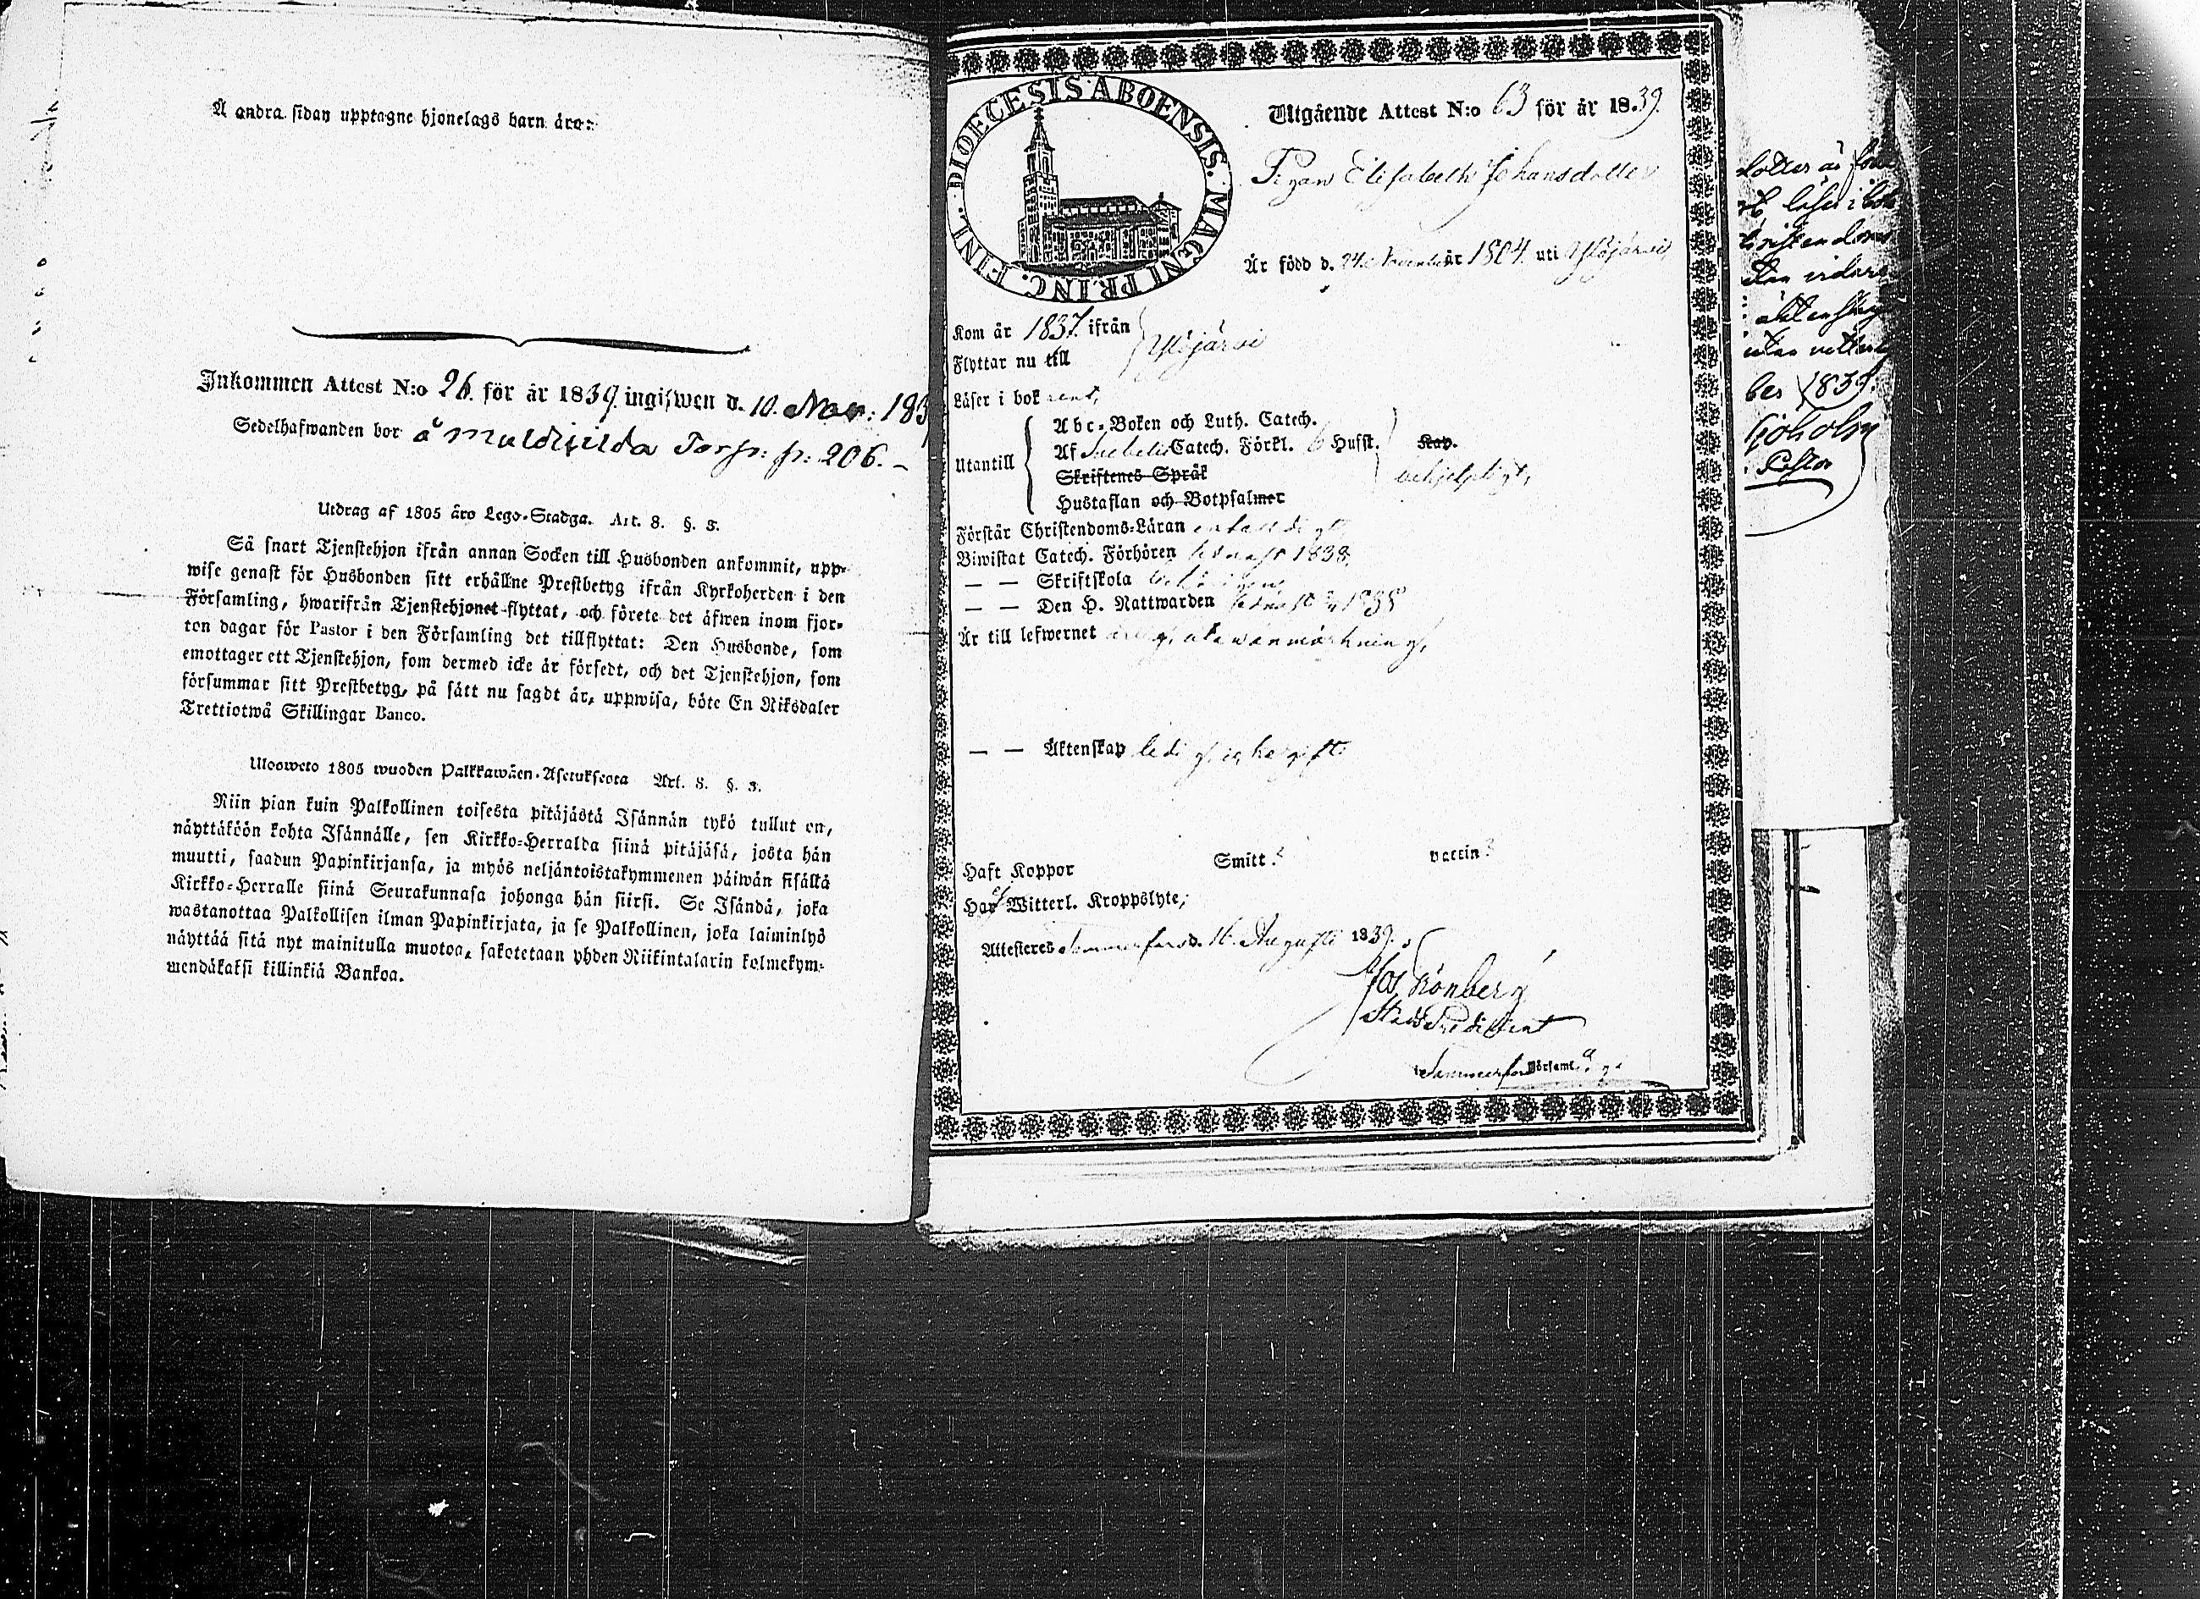 Å andra sidan upptagne hjonelags barn äro:
Inkommen Attest N:o 26. för år 1839. ingifwen d. 10. Nov: 183
Sedelhafwanden bor å Torp: p: 206.
Utdrag af 1805 års Lego-Stadga. Art. 8. §. 3.
Så snart Tjenstehjon ifrån annan Socken till Husbonden ankommit, upp-
wise genast för Husbonden sitt erhållne Prestbetyg ifrån Kyrkoherden i den
Församling, hwarifrån Tjenstehjonet flyttat, och förete det äfwen inom fjor-
ton dagar för Pastor i den Församling det tillflyttat: Den Husbonde, som
emottager ett Tjenstehjon, som dermed icke är försedt, och det Tjenstehjon, som
försummar sitt Prestbetyg, på sätt nu sagdt är, uppwisa, böte En Riksdaler
Trettiotwå Skillingar Banco.
Ulosweto 1805 wuoden Palkkawäen-Asetuksesta Art. 8. §. 3.
Niin pian kuin Palkollinen toisesta pitäjästä Isännän tykö tullut on,
näyttäköön kohta Isännälle, sen Kirkko-Herralda siinä pitäjäsä, josta hän
muutti, saadun Papinkirjansa, ja myös neljäntoistakymmenen päiwän sisällä
Kirkko-Herralle siinä Seurakunnasa johonga hän siirsi. Se Isändä, joka
wastanottaa Palkollisen ilman Papinkirjata, ja se Palkollinen, joka laiminlyö
näyttää sitä nyt mainitulla muotoa, sakotetaan yhden Riikintalarin kolmekym-
mendäkaksi killinkiä Bankoa.
DIOECESIS ABOENSIS. MAGNI PRINC. FINL.
Utgående Attest N:o 63 för år 1839.
Pigan Elisabeth Johansdotter
Är född d. 24. November år 1804. uti Ylöjärvi
Kom år 1837. ifrån
Flyttar nu till
Ylöjärvi
Läser i bok rent,
Abc-Boken och Luth. Catech.
Af Svebelii Catech. Förkl. 6 Hufst. Kap.
Utantill
Skriftenes Språk
behjelpligt,
Hustaflan och Botpsalmer
Förstår Christendoms-Läran
Biwistat Catech. Förhören sednast 1838,
— — Skriftskola
— — Den H. Nattwarden sednast 1838
Är till lefwernet utan anmärkning,
— — Äktenskap ledig
Haft Koppor Smitt. vaccin.
Har Witterl. Kroppslyte,
Attesteres Tammerfors d. 16. Augusti 1839.
Grönberg
Tammerfors Församl.
dotter är född
läser i bok
Christendoms
ber 1839.
Pastor